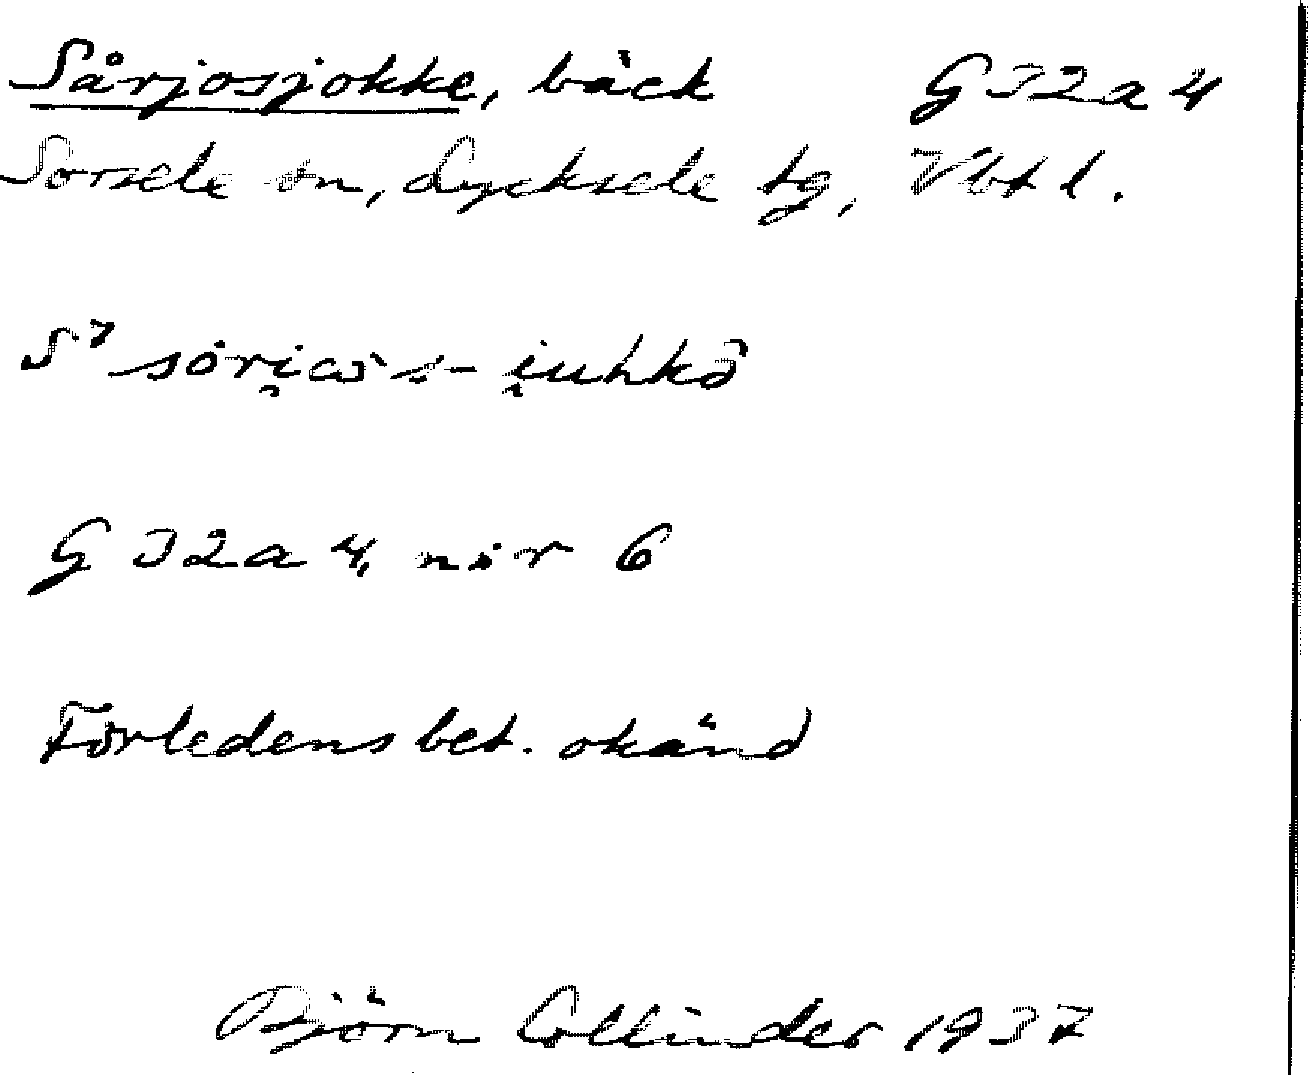 Sårjosjokke, bäck G32a4
Sorsele sn, Lycksele tg, Vbtl.
G32a4, nor 6
Förledens bet. okänd
Björn Collinder 1937